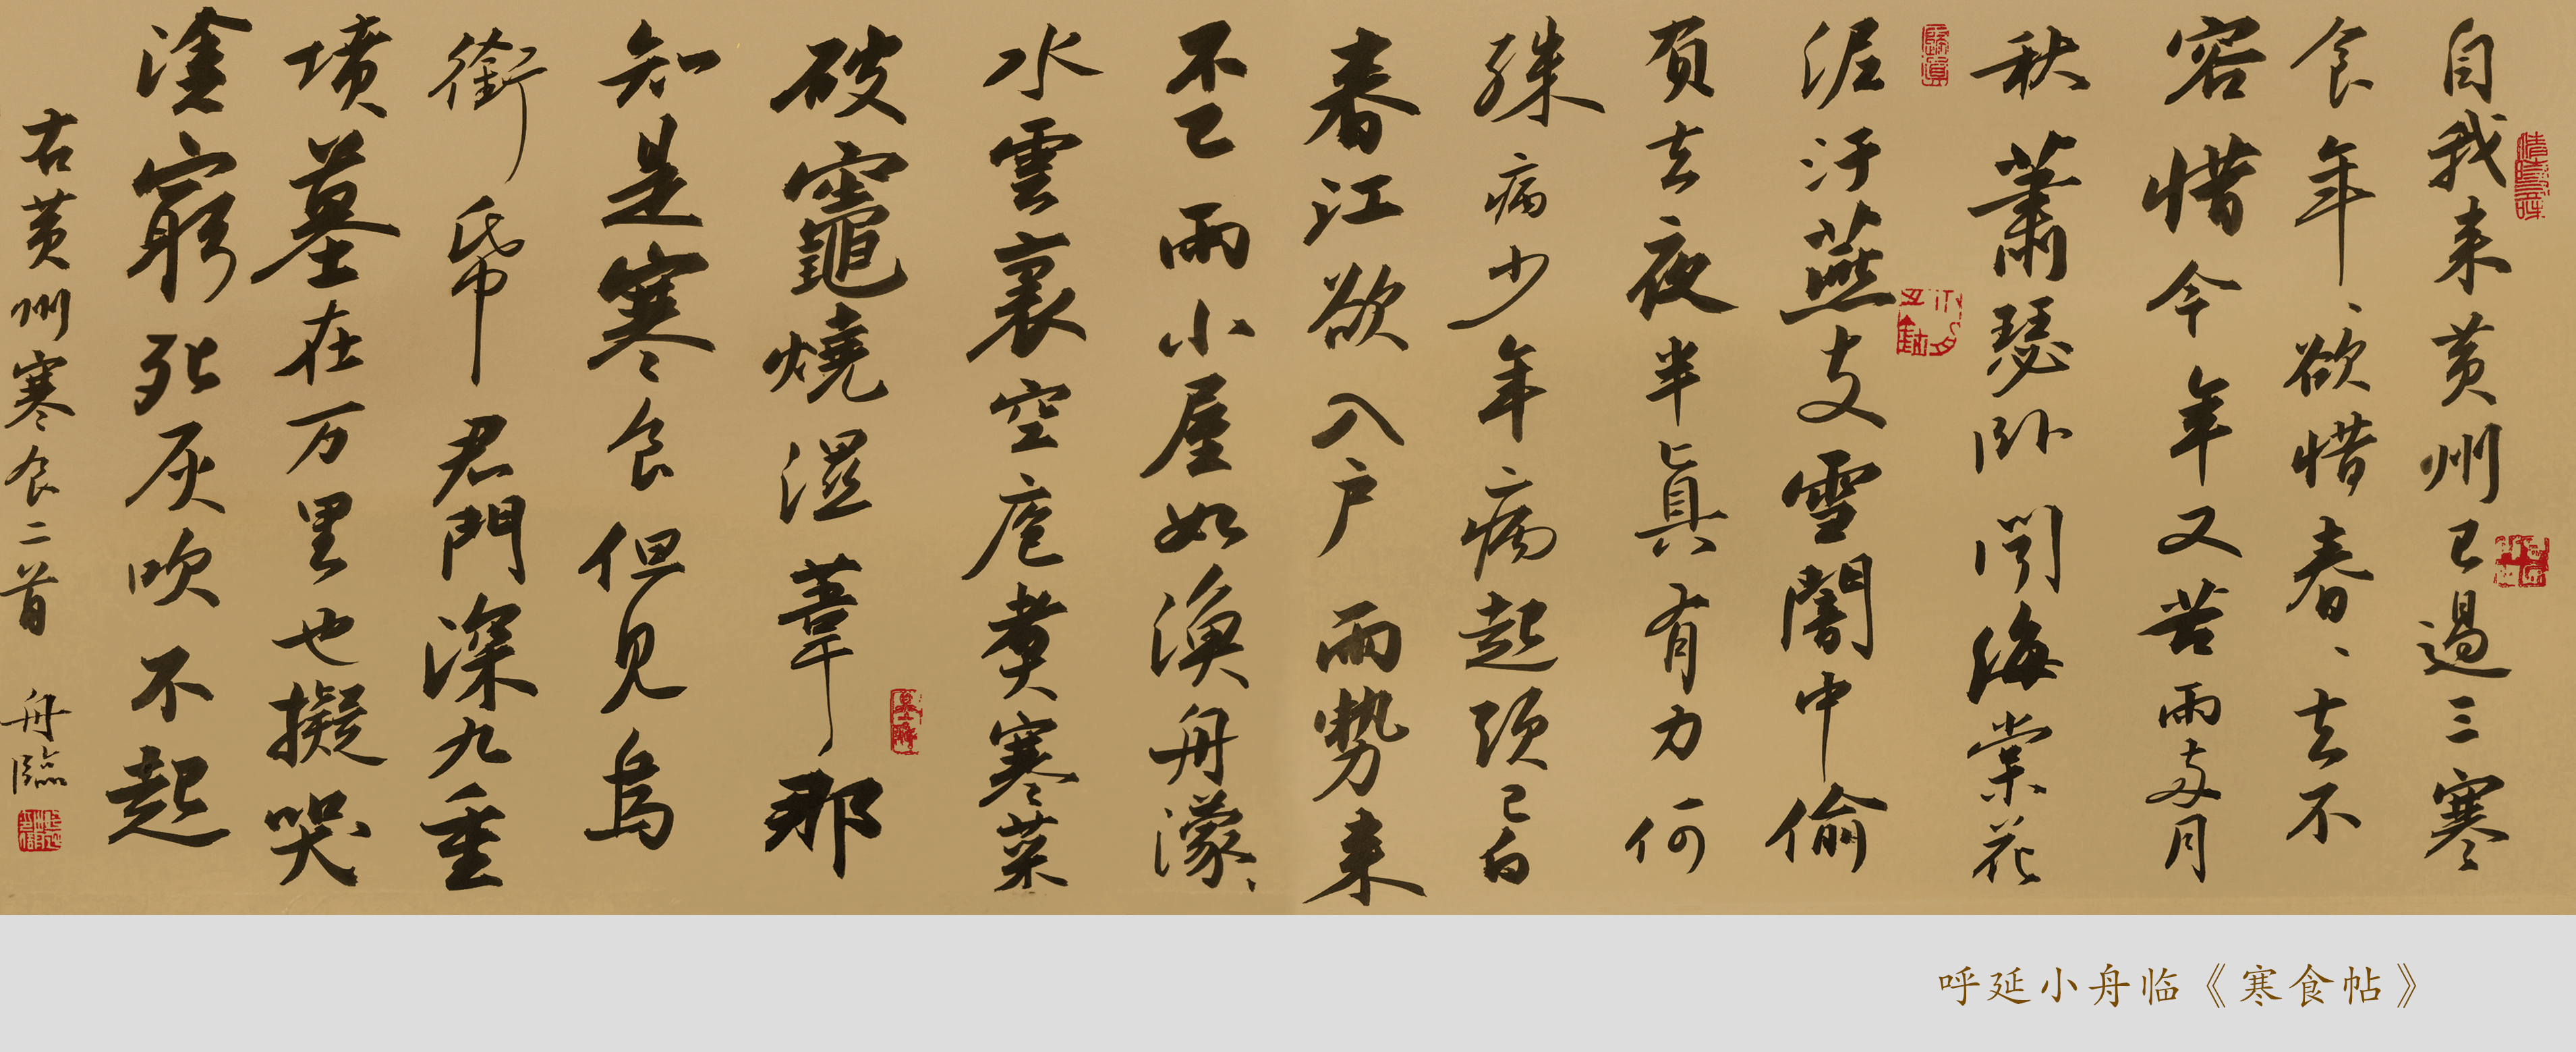 自我来黄州已過三寒
食年、欲惜春、去不
容惜今年又苦雨两月
秋蕭瑟卧聞海棠花
泥汙燕支雪闇中偷
負去夜半真有力何
殊病少年病起頭已白
春江欲入户雨勢来
不已雨小屋如漁舟濛、
水雲裏空庖煮寒菜
破竈燒濕葦那
知是寒食但見烏
銜帋君門深九重
墳墓在万里也擬哭
塗窮死灰吹不起
右黄州寒食二首 舟臨
呼延小舟临《寒食帖》